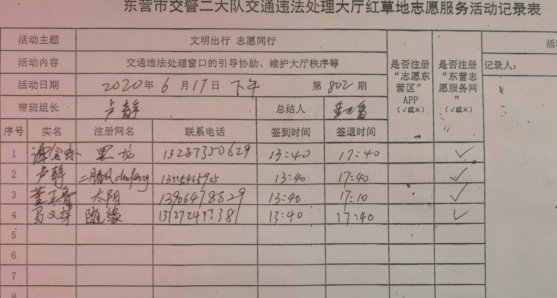 东营市交警二大队交通违法处理大厅红草地志愿服务活动记录表
活动主题 文明出行 志愿同行 是否注册“志愿东营区”APP（√或×） 是否注册“东营志愿服务网”（√或×） 记录人：
活动内容 交通违法处理窗口的引导协助、维护大厅秩序等
活动日期 2020年6月17日下午 第802期
带班组长 卢静 总结人
序号 实名 注册网名 联系电话 签到时间 签退时间
1 黑龙 13287350629 13:40 17:40 ✓
2 卢静 13:40 17:40 ✓
3 太阳 13906478829 13:40 17:10 ✓
4 随缘 13:40 17:40 ✓
5
6
7